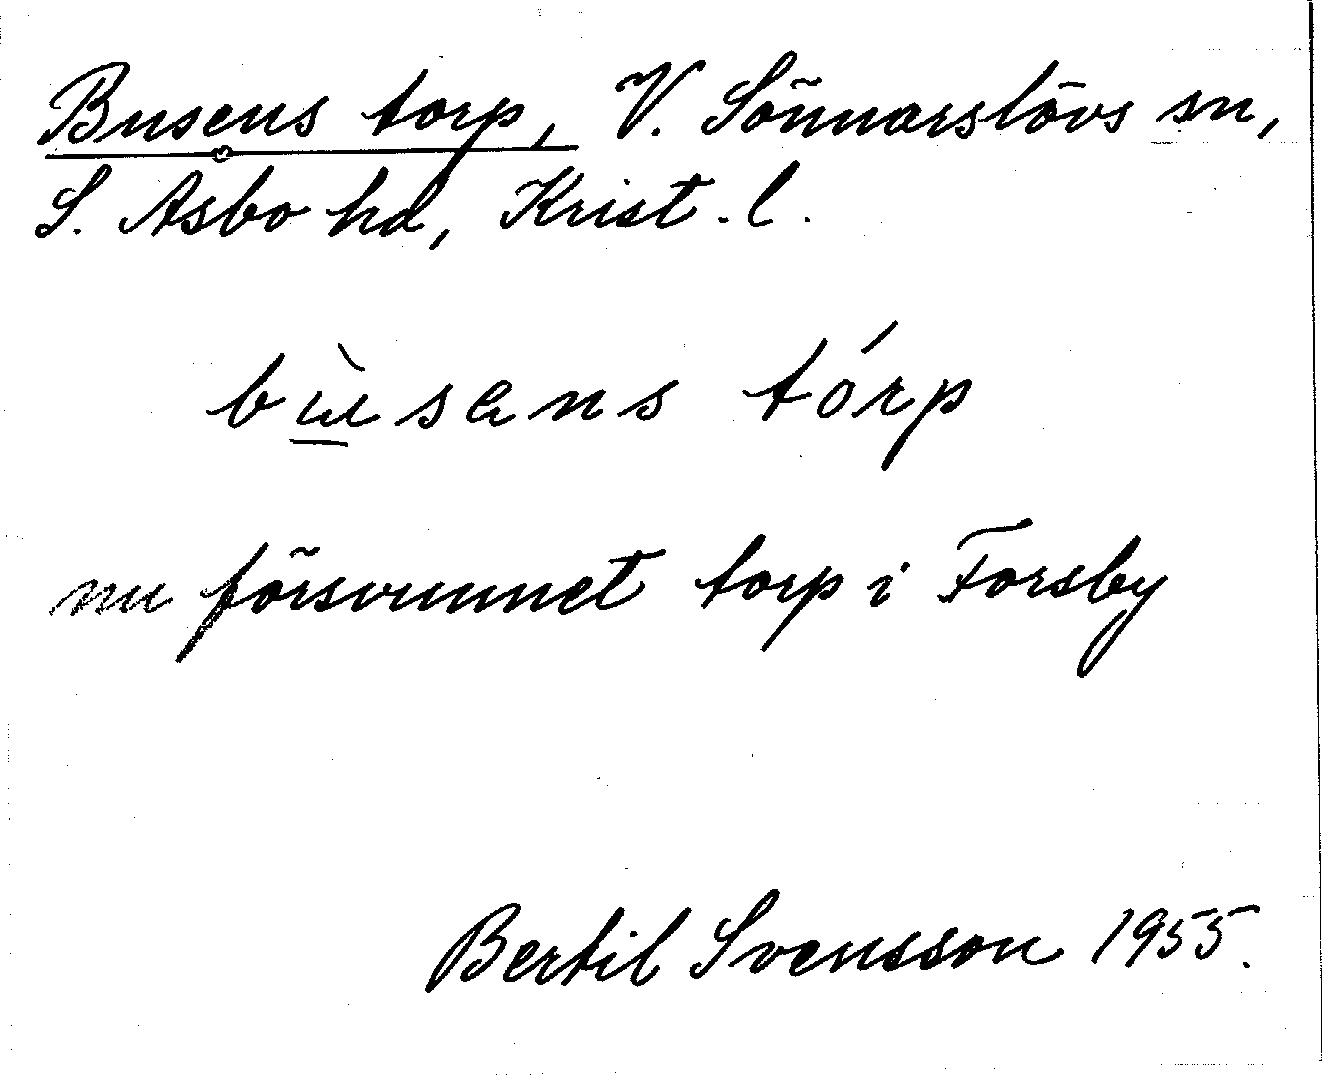 Busens torp, V. Sönnarslövs sn,
S. Åsbo hd, Krist. l.
bùsens tórp
nu försvunnet torp i Forsby
Bertil Svensson 1955.